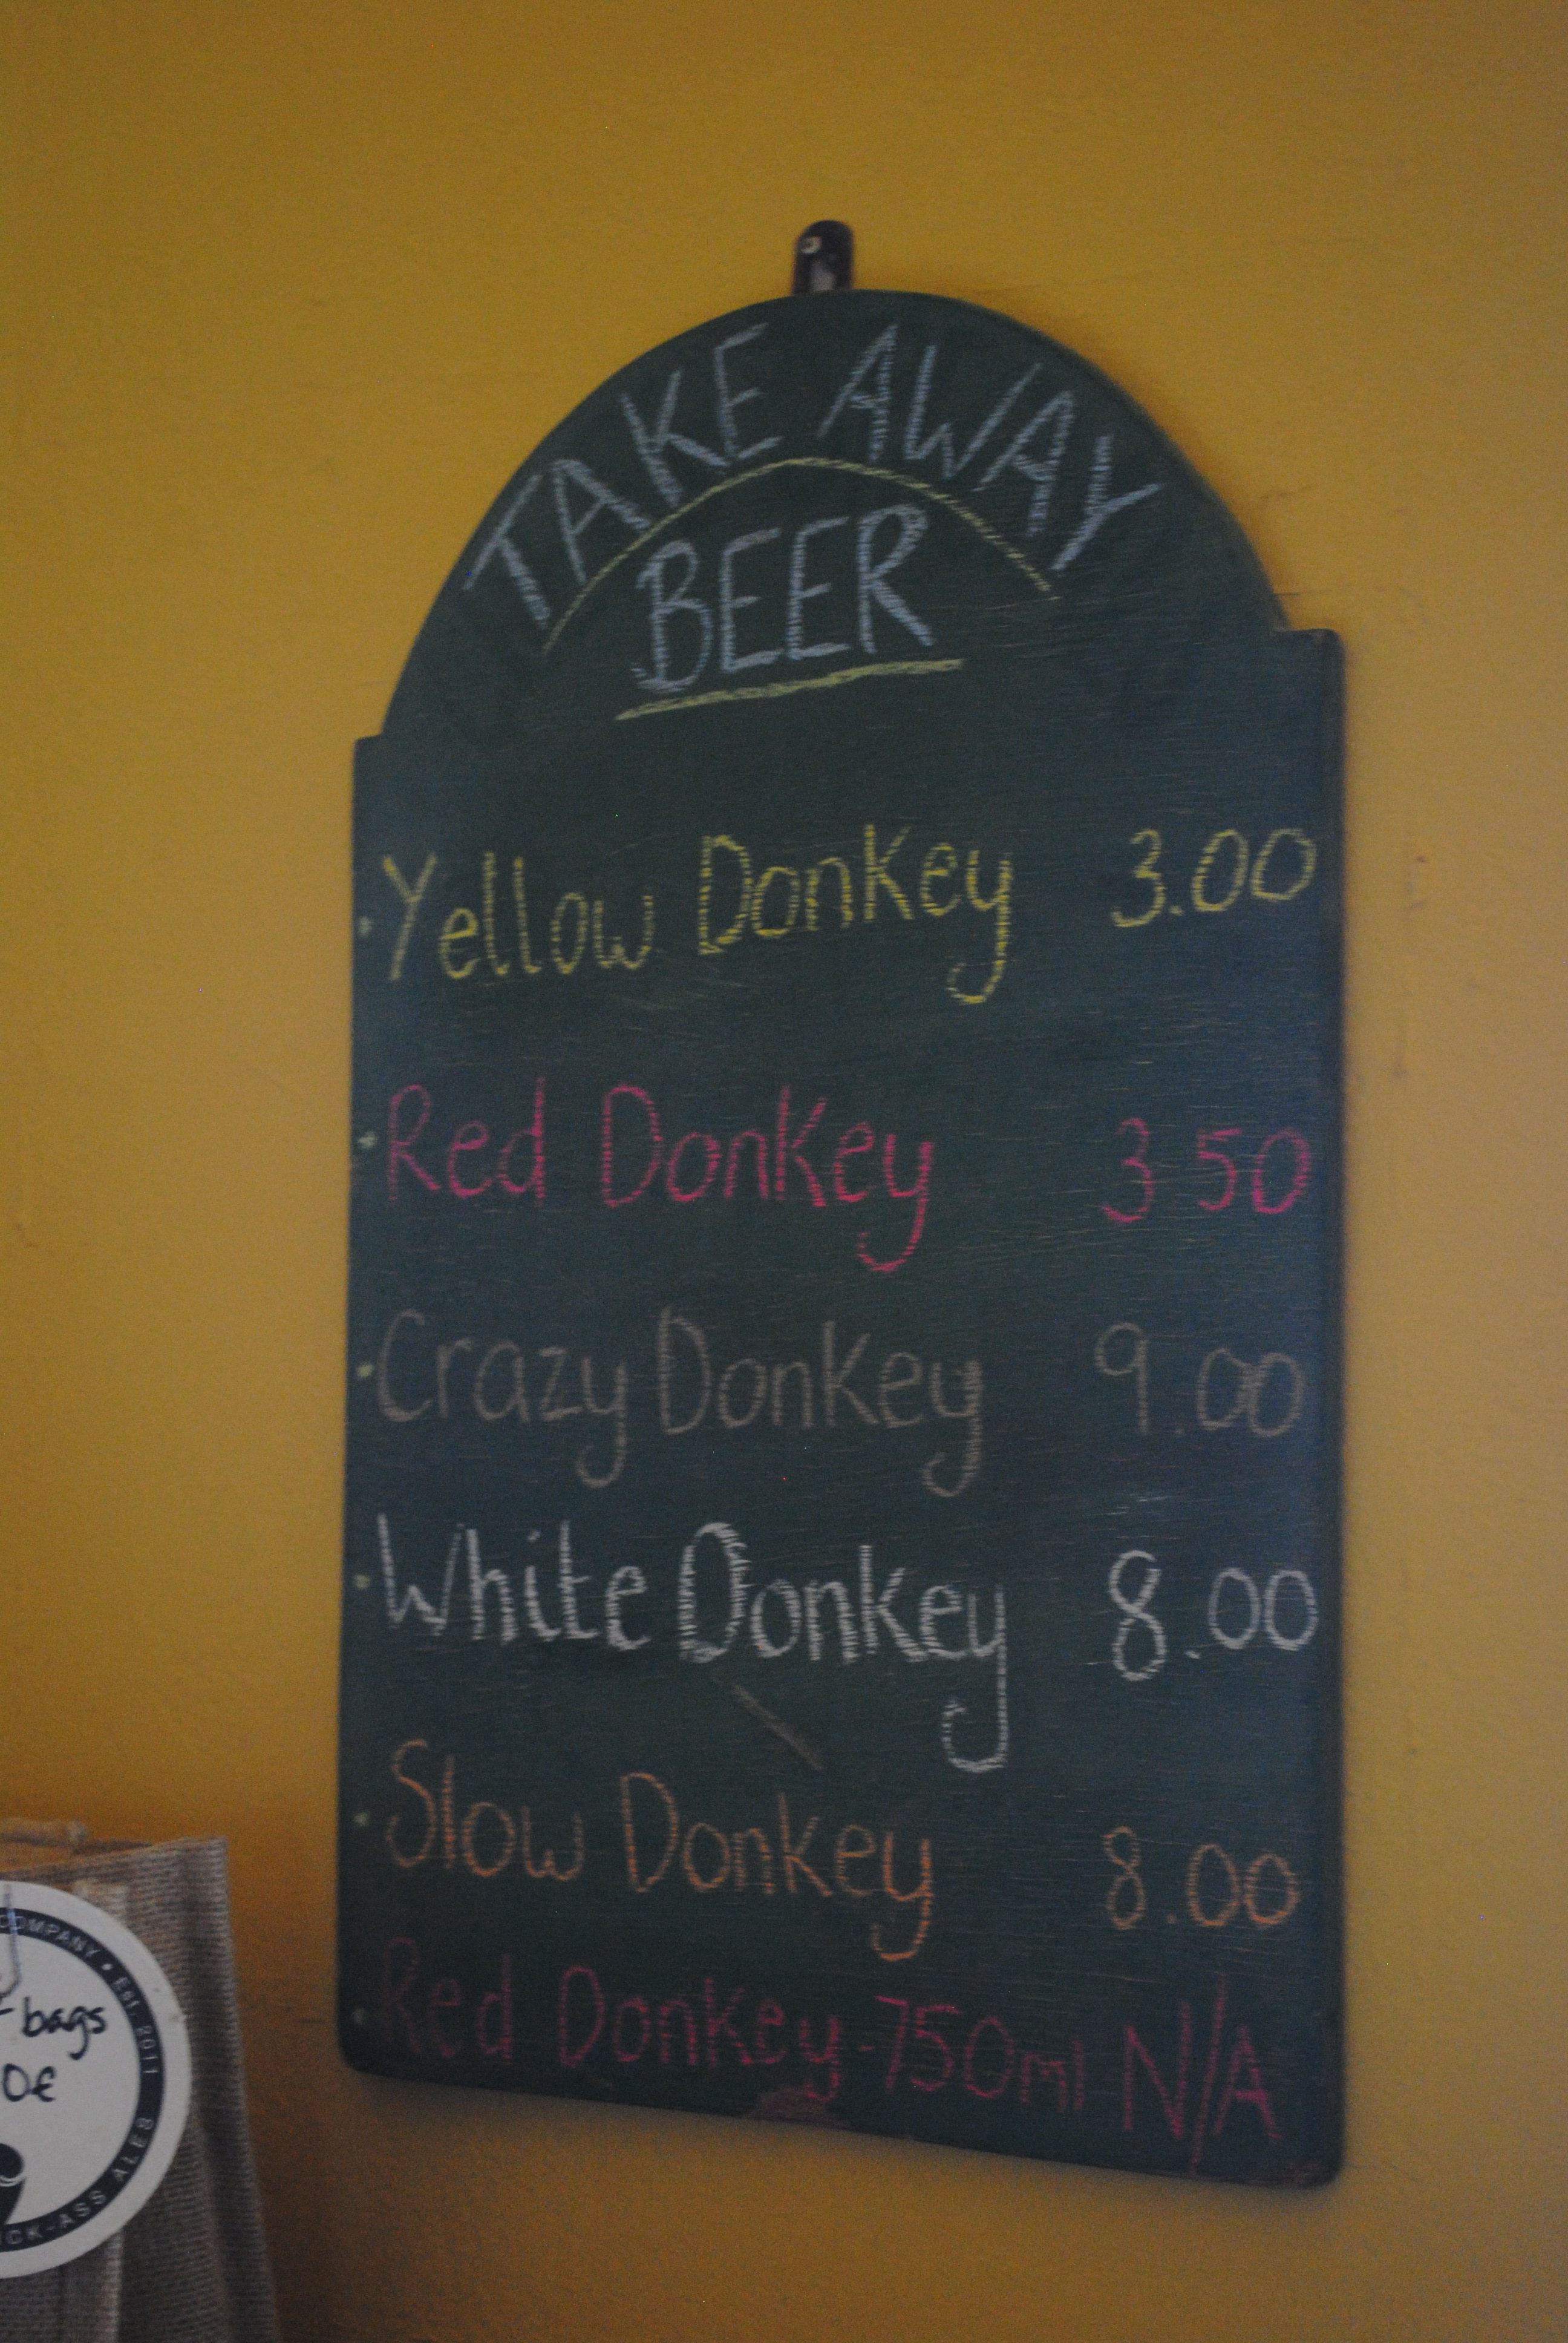 TAKE AWAY
BEER
Yellow Donkey 3.00
Red Donkey 3 50
Crazy Donkey 9.00
White Donkey 8.00
Slow Donkey 8.00
Red Donkey-750ml N/A
COMPANY • Est. 2011
bags
0€
ALES